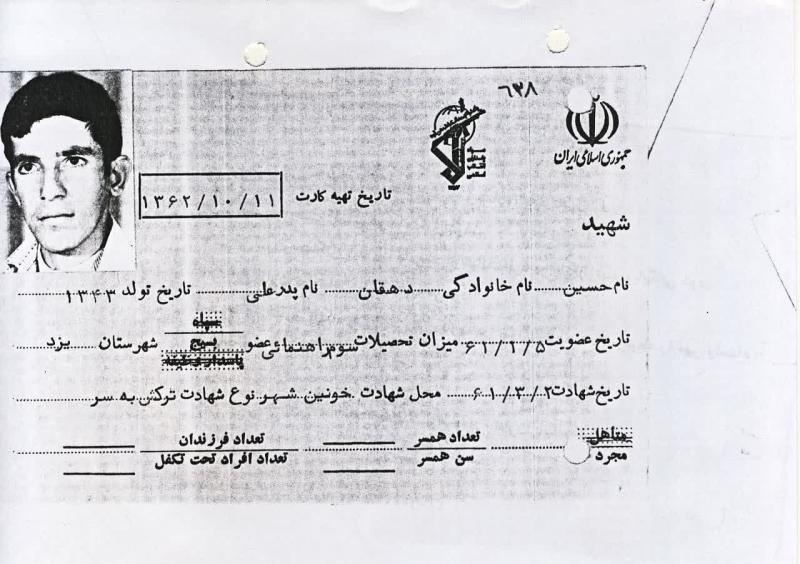 ۶۳۸
جمهوری اسلامی ایران
تاریخ تهیه کارت ۱۳۶۲/۱۰/۱۱
شهید
نام حسین نام خانوادگی دهقان نام پدر علی تاریخ تولد ۱۳۴۳
تاریخ عضویت ۶۱/۲/۵ میزان تحصیلات سوم راهنمائی عضو بسیج شهرستان یزد
تاریخ شهادت ۶۱/۳/۲ محل شهادت خونین شهر نوع شهادت ترکش به سر
متاهل تعداد همسر تعداد فرزندان
مجرد سن همسر تعداد افراد تحت تکفل